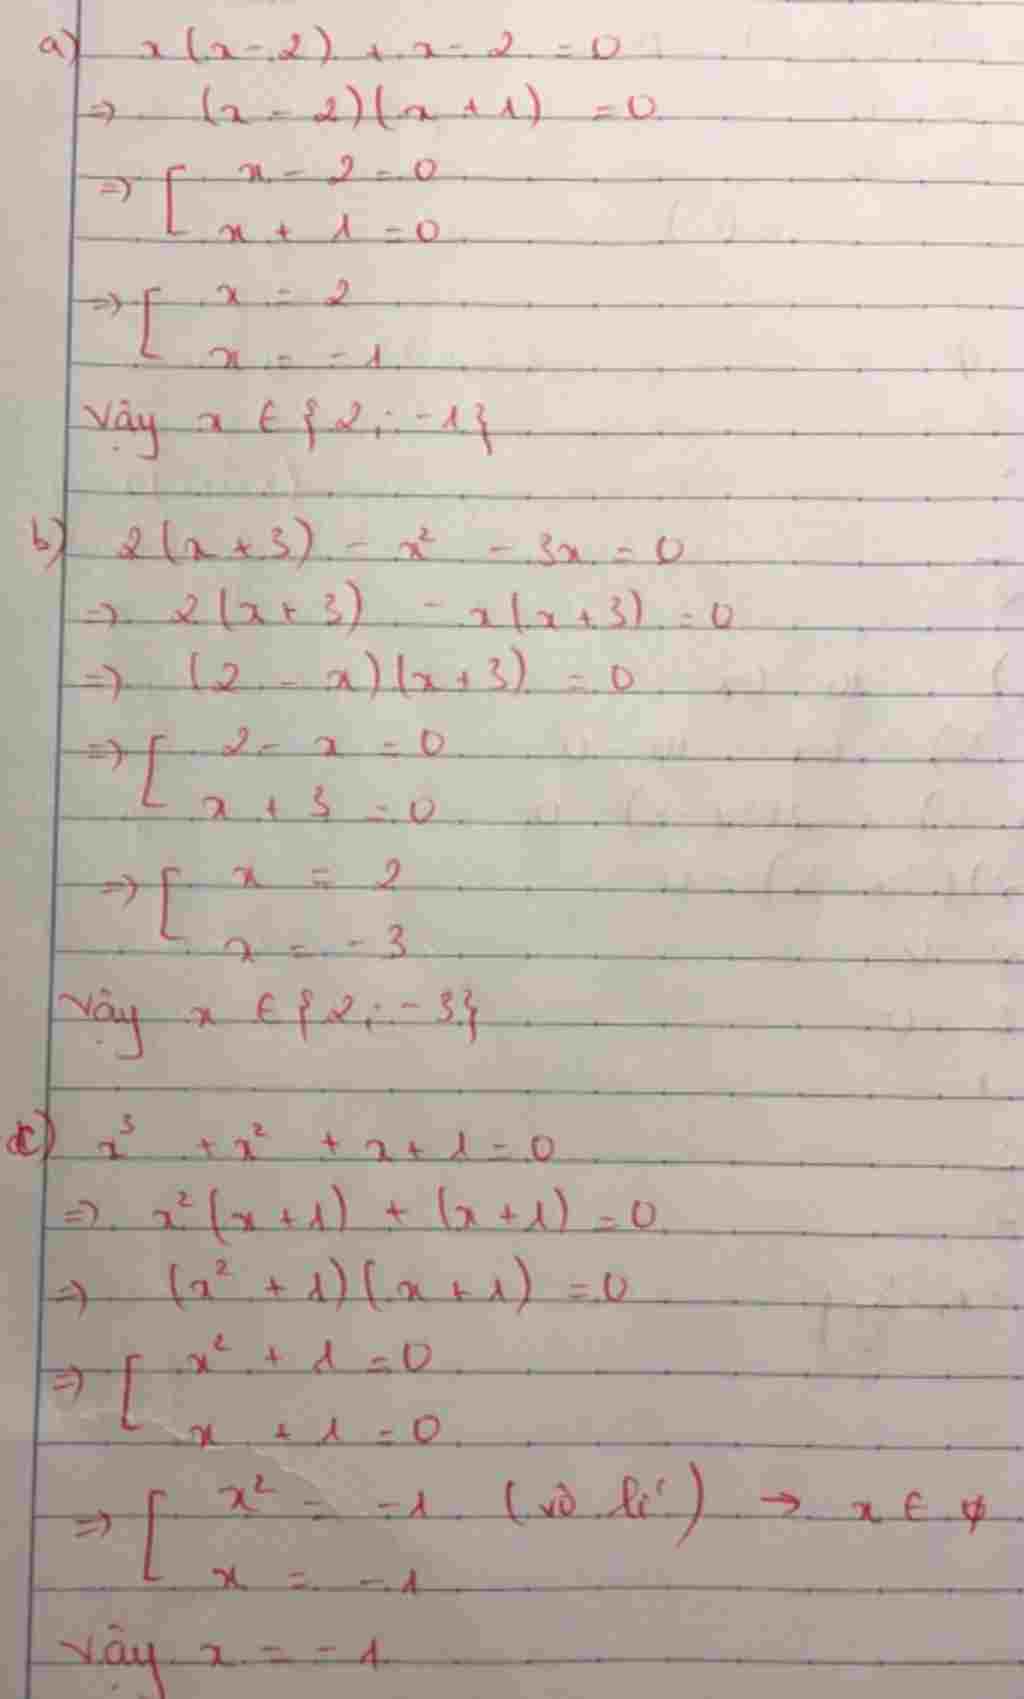 a) x(x-2) + x - 2 = 0
=> (x - 2)(x + 1) = 0
=> [ x - 2 = 0
x + 1 = 0
=> [ x = 2
x = -1
Vậy x ∈ {2; -1}
b) 2(x+3) - x² - 3x = 0
=> 2(x+3) - x(x+3) = 0
=> (2 - x)(x+3) = 0
=> [ 2 - x = 0
x + 3 = 0
=> [ x = 2
x = -3
Vậy x ∈ {2; -3}
c) x³ + x² + x + 1 = 0
=> x²(x+1) + (x+1) = 0
=> (x² + 1)(x + 1) = 0
=> [ x² + 1 = 0
x + 1 = 0
=> [ x² = -1 (vô lí) → x ∈ ∅
x = -1
Vậy x = -1